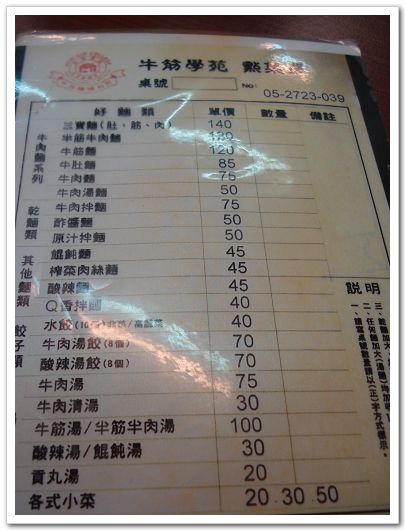 牛筋學苑 點菜單
桌號 NO:
05-2723-039
好麵類 單價 數量 備註
牛肉麵系列
三寶麵(肚、筋、肉) 140
半筋牛肉麵 130
牛筋麵 120
牛肚麵 85
牛肉麵 75
牛肉湯麵 50
牛肉拌麵 75
乾麵類
酢醬麵 50
原汁拌麵 50
其他麵類
餛飩麵 45
榨菜肉絲麵 45
酸辣麵 45
Q香拌麵 40
餃子類
水餃(10個) 40
牛肉湯餃(8個) 70
酸辣湯餃(8個) 70
牛肉湯 75
牛肉清湯 30
牛筋湯/半筋半肉湯 100
酸辣湯/餛飩湯 30
貢丸湯 20
各式小菜 20.30.50
說明
一、請寫桌號數量請以(正)字方式標示。
二、任何麵加大
三、乾麵加大(湯麵)均加